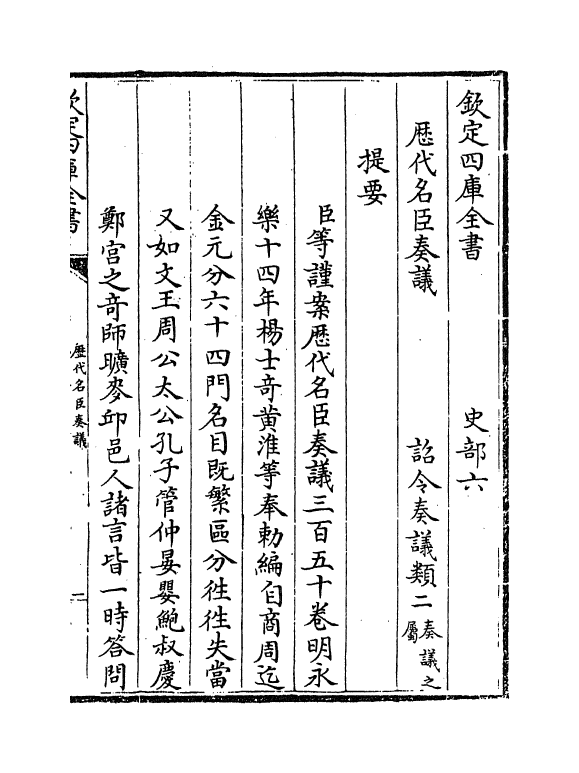 欽定四庫全書　史部六
歴代名臣奏議　詔令奏議類二奏議之屬
提要
臣等謹案歴代名臣奏議三百五十卷明永
樂十四年楊士竒黄淮等奉勅編自商周迄
金元分六十四門名目既繁區分徃徃失當
又如文王周公太公孔子管仲晏嬰鮑叔慶
鄭宫之竒師曠麥邱邑人諸言皆一時答問
欽定四庫全書
歴代名臣奏議
一